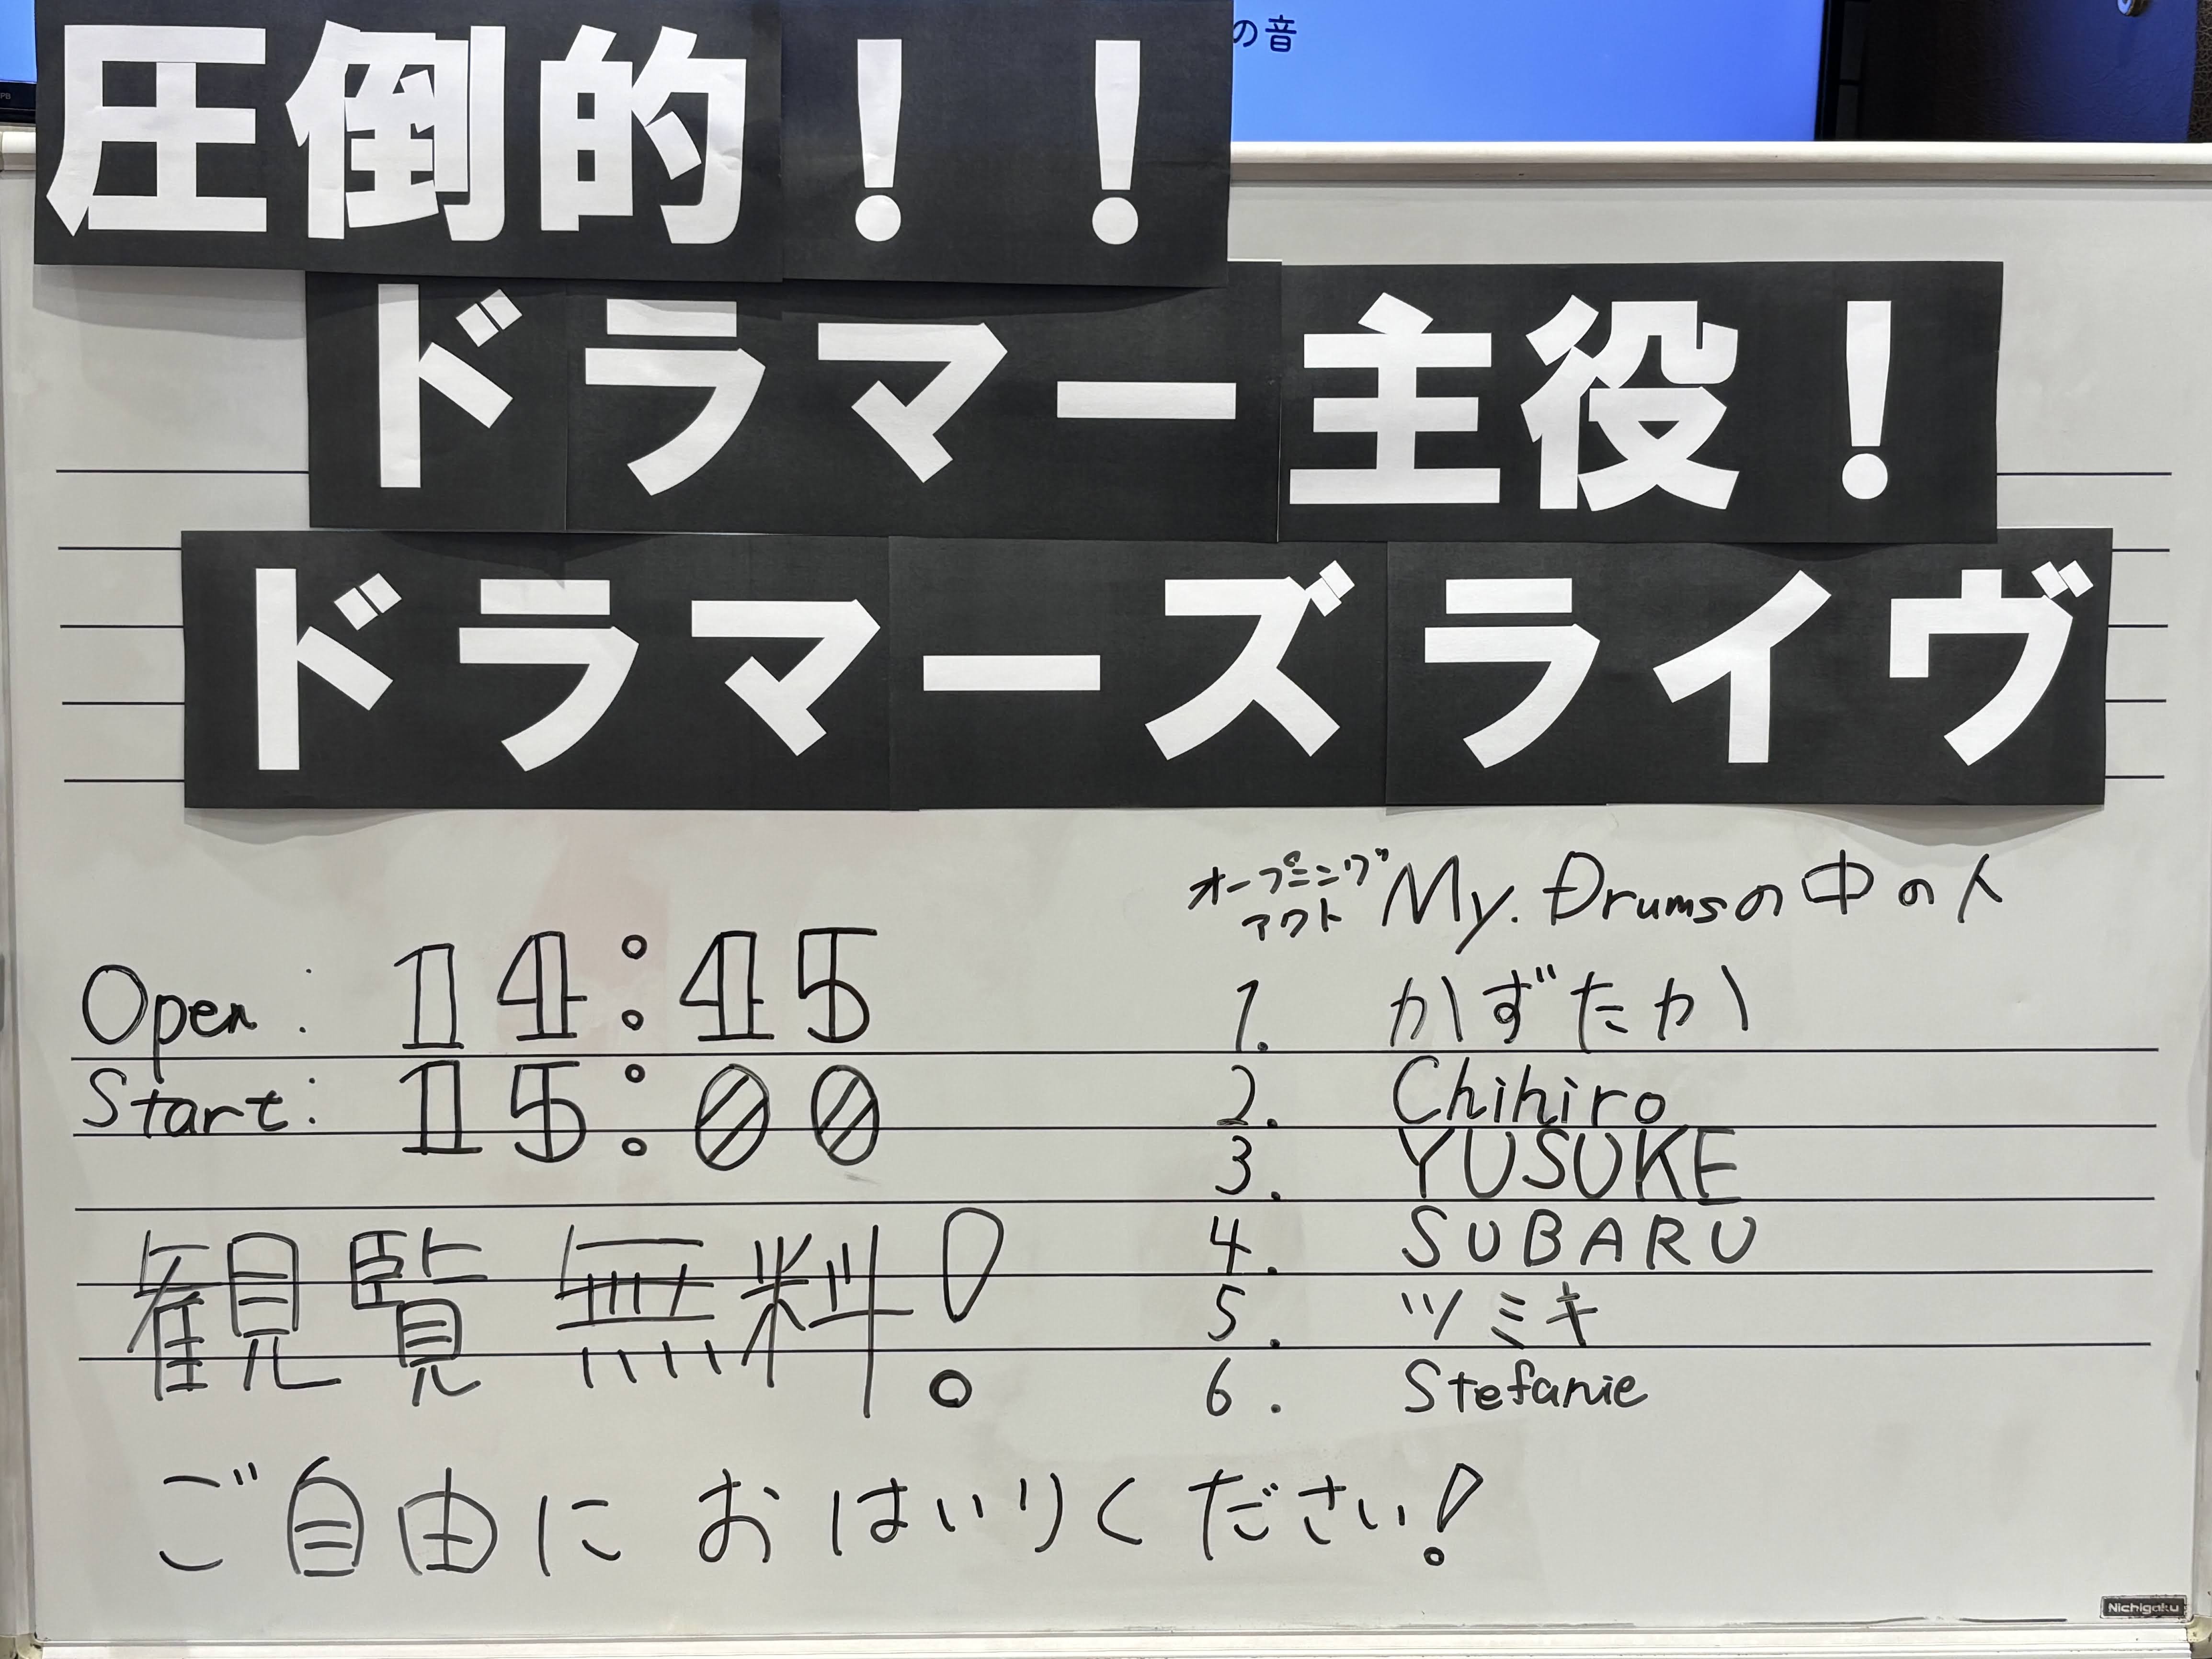 の音
圧倒的！！
ドラマー主役！
ドラマーズライヴ
Open: 14:45
Start: 15:00
観覧 無料!
オープニング
アクト
My. Drumsの中の人
1. かずたか
2. Chihiro
3. YUSUKE
4. SUBARU
5. ツミキ
6. Stefanie
ご自由に おはいりください!
Nichigaku